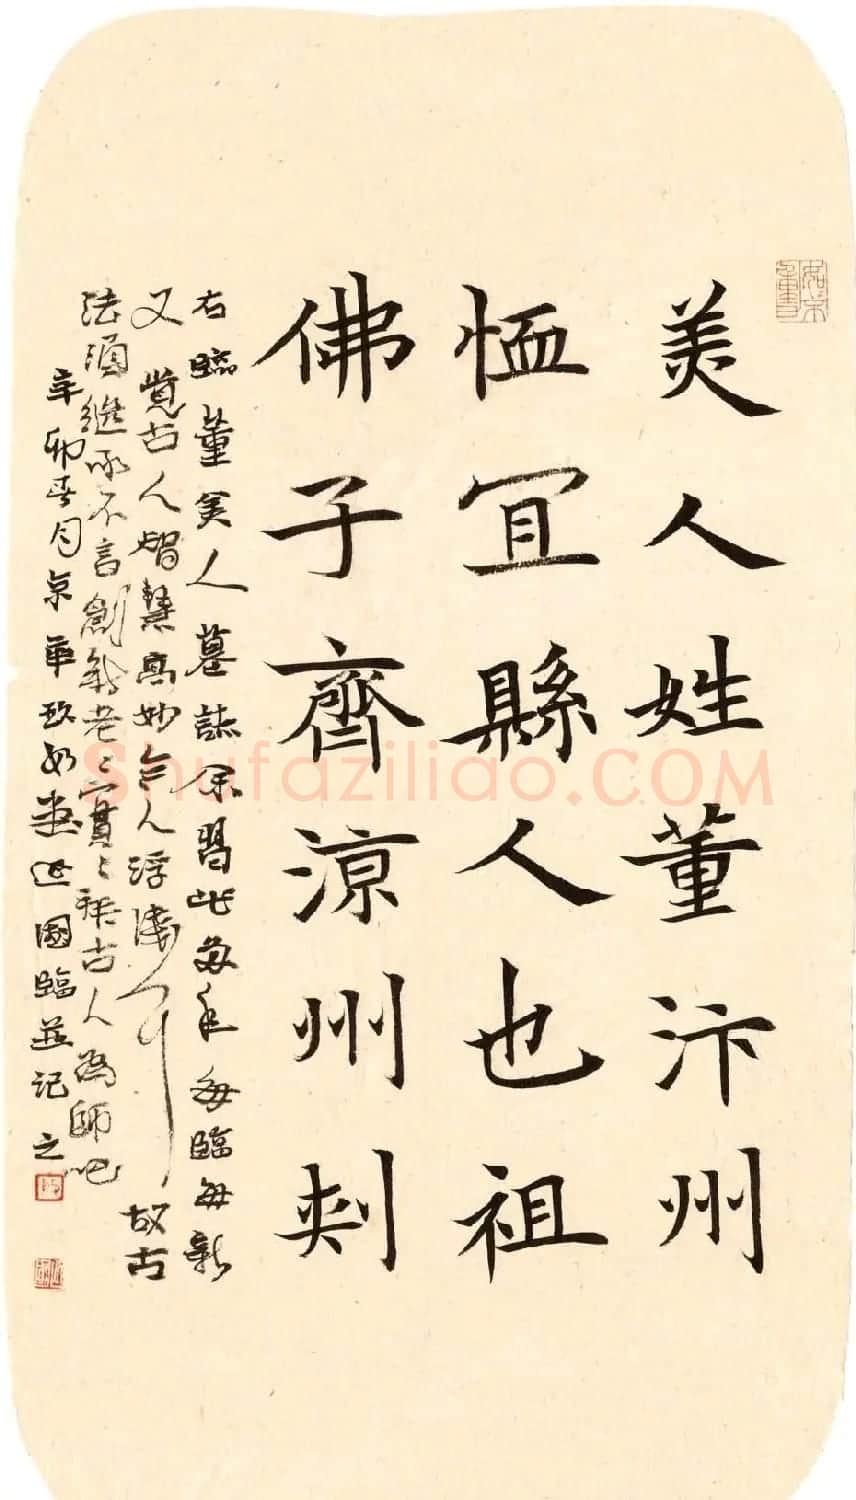 美人姓董汴州
恤宜縣人也祖
佛子齊涼州刺
右臨董美人墓誌余習此每年每臨每新
又覺古人智慧高妙今人浮淺 故古
法須繼承不言創新老老實實拜古人為師吧
辛卯春月京華 國臨並記之
Shufaziliao.COM